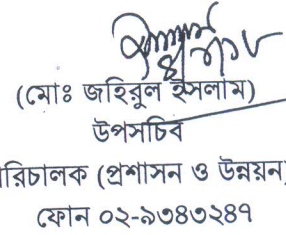 (মোঃ জহিরুল ইসলাম)
উপসচিব
রিচালক (প্রশাসন ও উন্নয়ন)
ফোন ০২-৯৩৪৩২৪৭